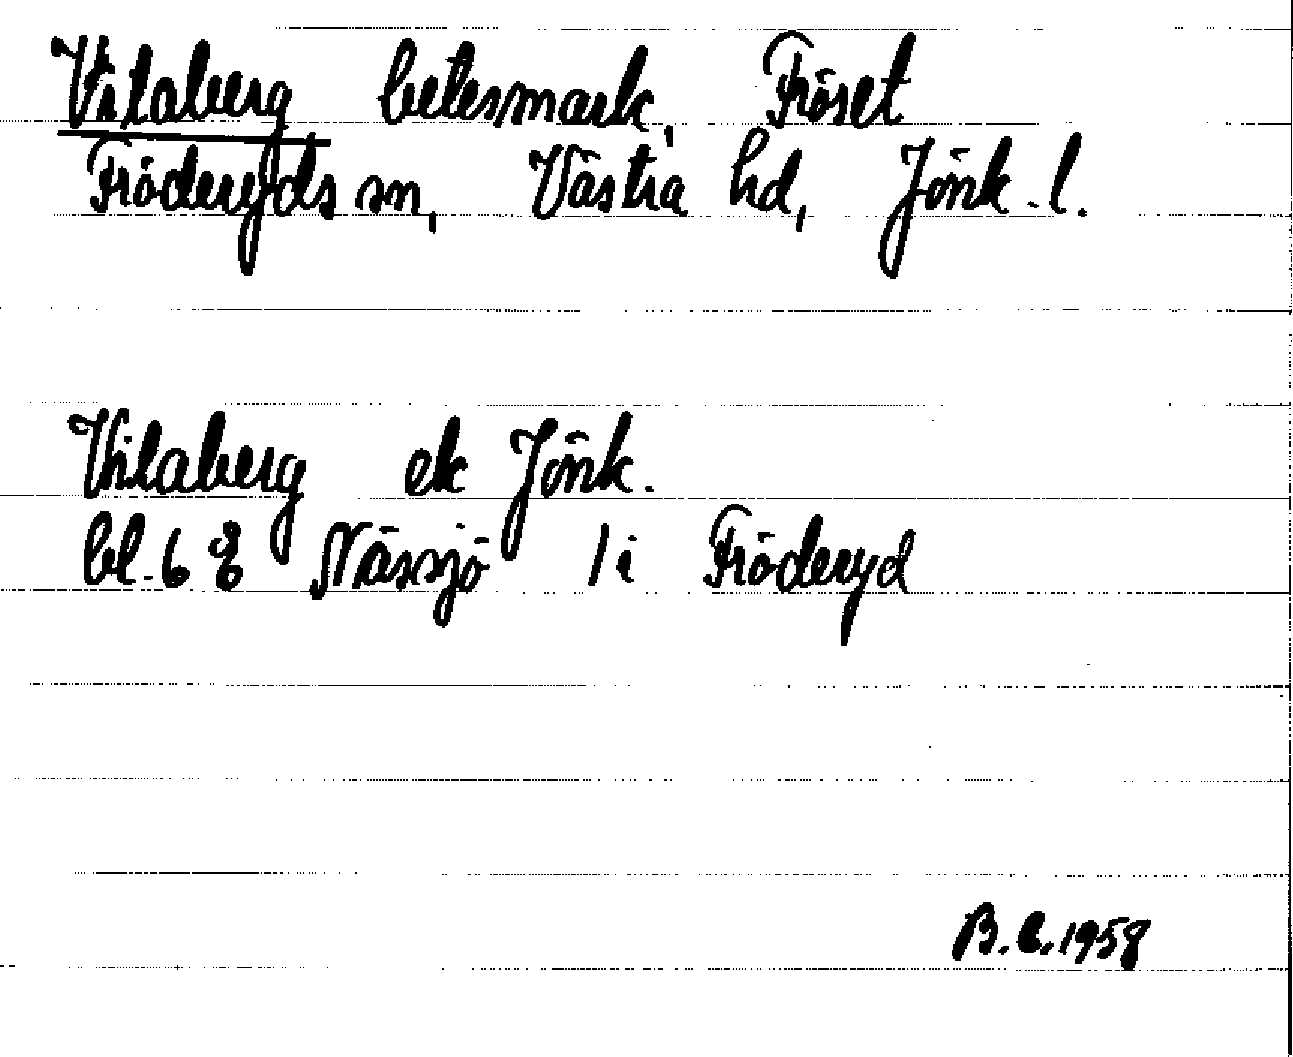 Vilaberg betesmark, Fröset
Fröderyds sn, Västra hd, Jönk. l.
Vilaberg ek Jönk.
bl. 6 8 Nässjö / i Fröderyd
B. E. 1958